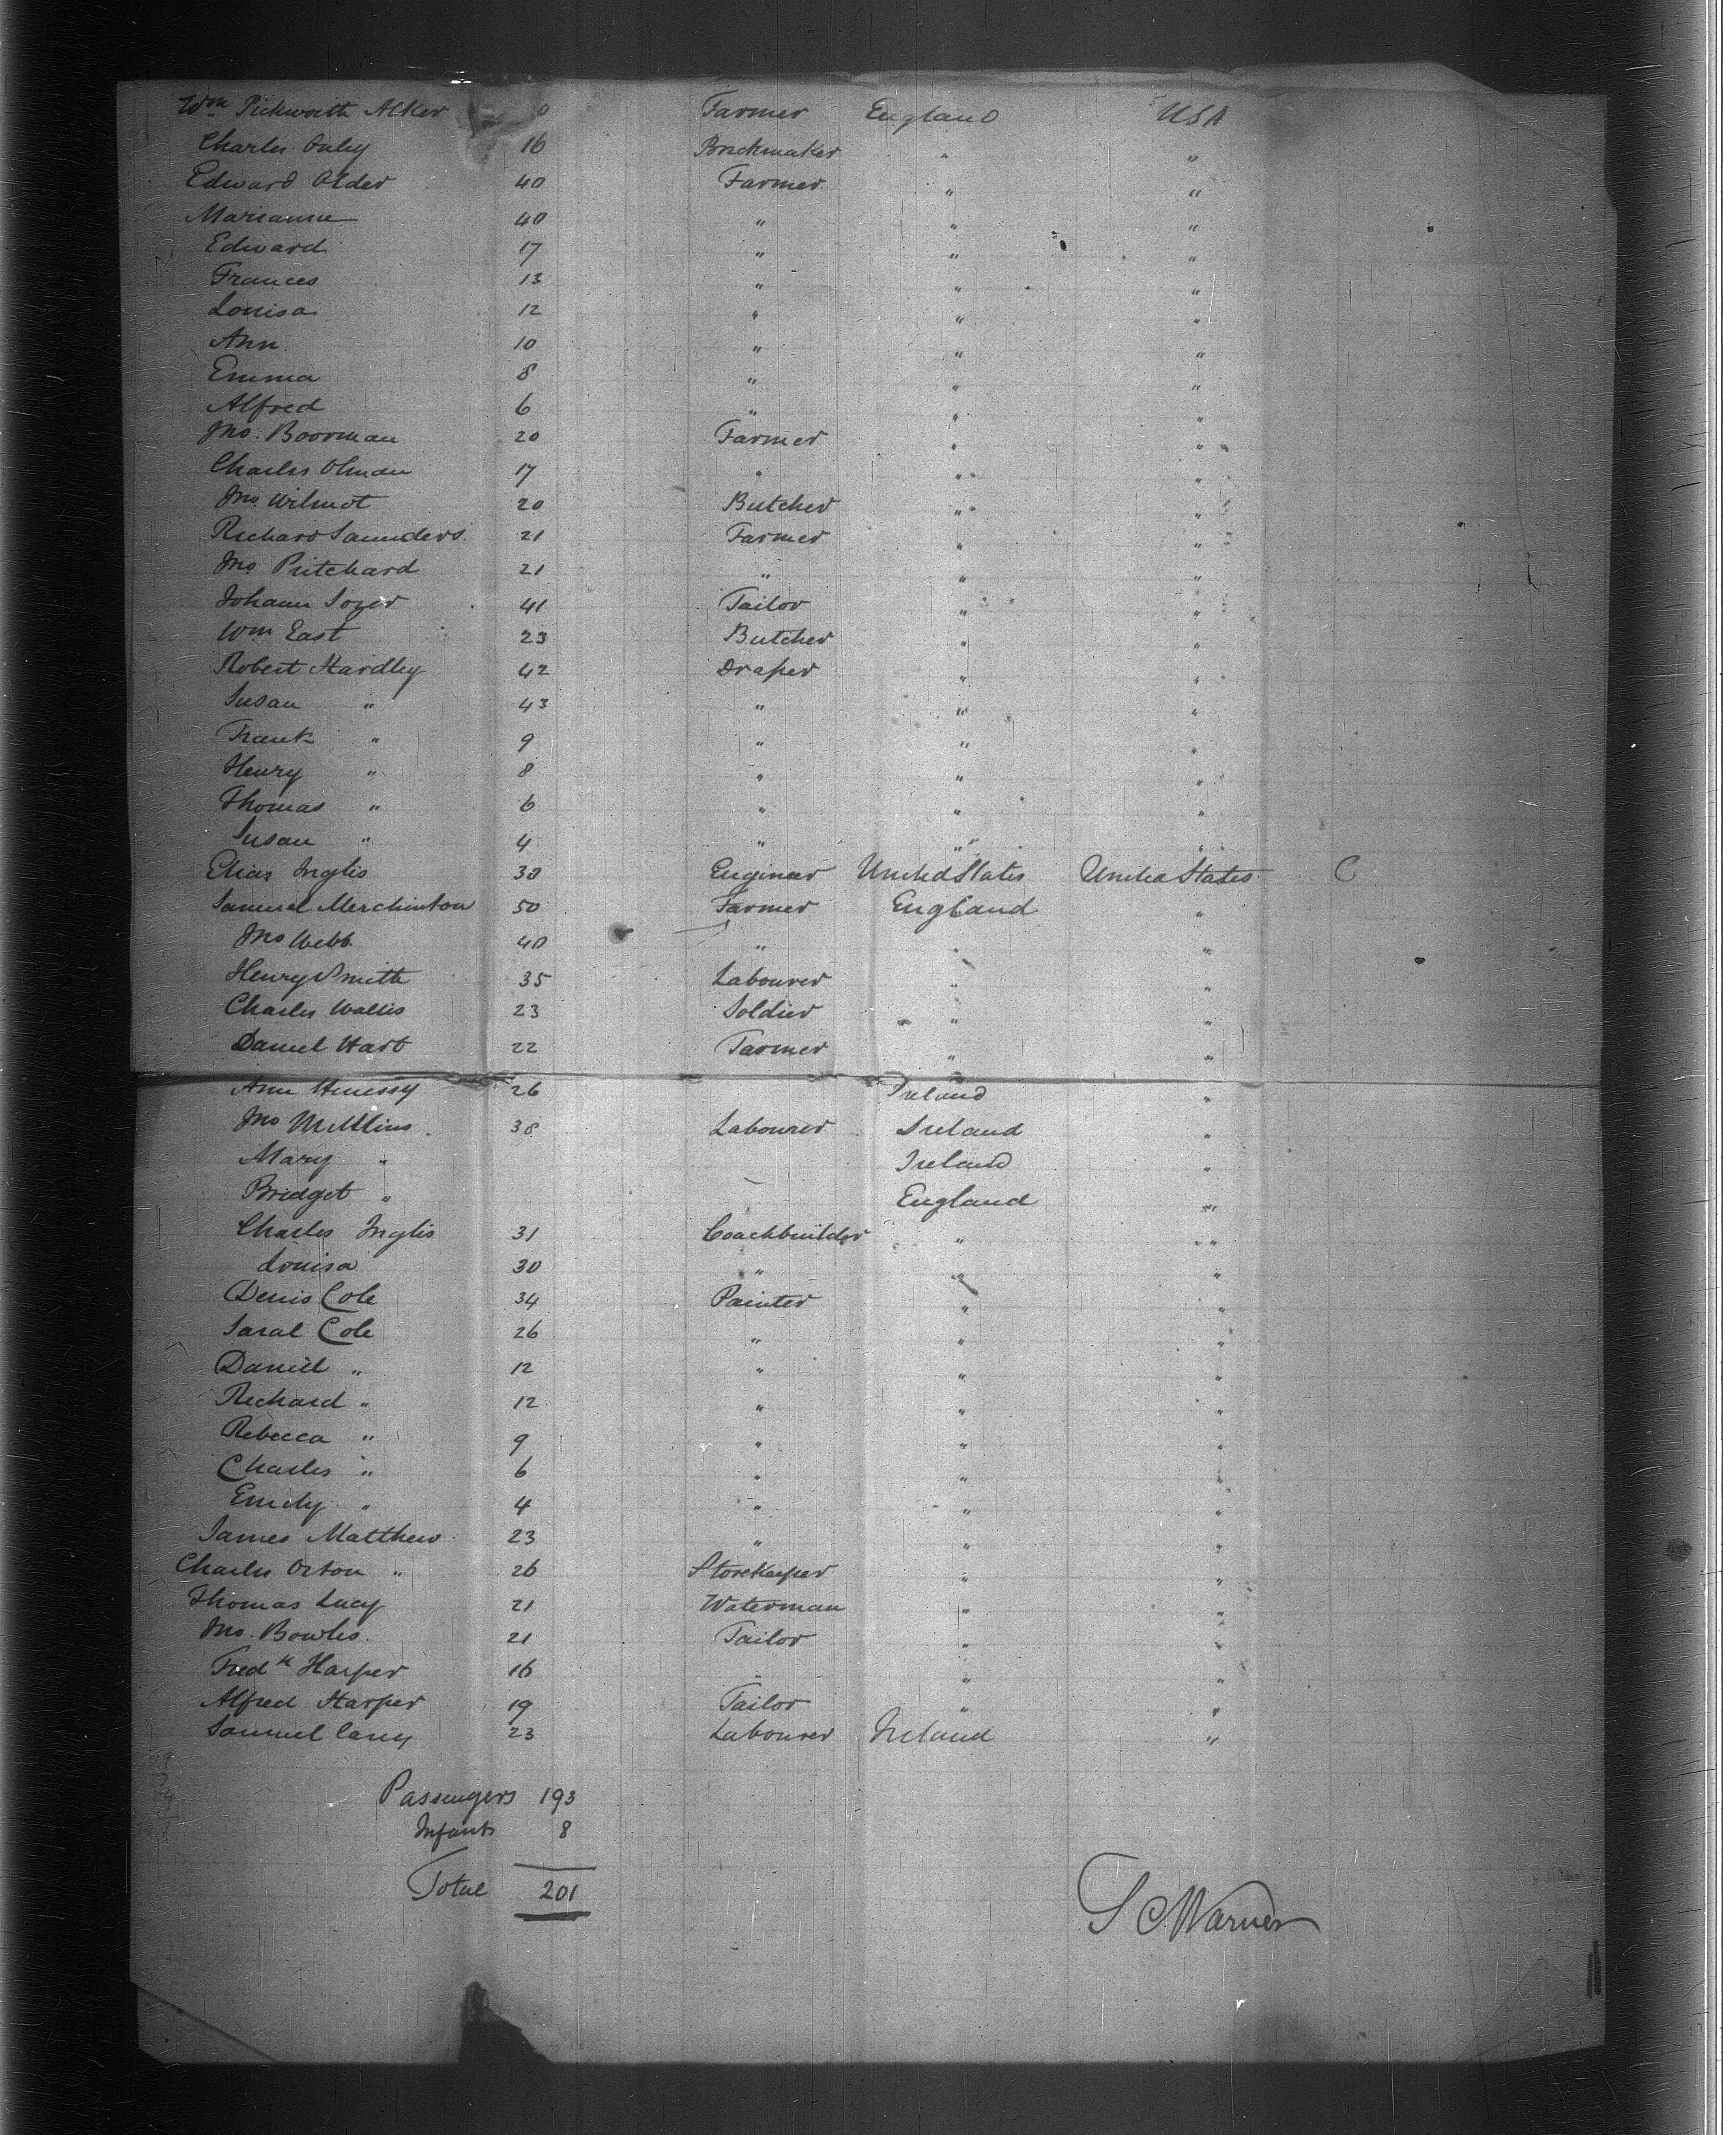 Wm Pickworth Alker 0 Farmer England USA
Charles 16 Brickmaker " "
Edward Alder 40 Farmer " "
Marianne 40 " " "
Edward 17 " " "
Frances 13 " " "
Louisa 12 " " "
Ann 10 " " "
Emma 8 " " "
Alfred 6 " " "
Jno. Boorman 20 Farmer " "
Charles Olman 17 " " "
Jno Wilmot 20 Butcher " "
Richard Saunders 21 Farmer " "
Jno Pritchard 21 " " "
Johann 41 Tailor " "
Wm East 23 Butcher " "
Robert Hardley 42 Draper " "
Susan " 43 " " "
Frank " 9 " " "
Henry " 8 " " "
Thomas " 6 " " "
Susan " 4 " " "
Elias Inglis 30 Engineer United States United States C
Samuel Merchinton 50 Farmer England "
Jno Webb 40 " " "
Henry Smith 35 Labourer " "
Charles Wallis 23 Soldier " "
Daniel Hart 22 Farmer " "
Ann 26 Ireland "
Jno 38 Labourer Ireland "
Mary " Ireland "
Bridget " England "
Charles Inglis 31 Coachbuilder " "
Louisa 30 " " "
Denis Cole 34 Painter " "
Saral Cole 26 " " "
Daniel " 12 " " "
Richard " 12 " " "
Rebecca " 9 " " "
Charles " 6 " " "
Emily " 4 " " "
James Matthew 23 " " "
Charles Orton " 26 Storekeeper " "
Thomas Lucy 21 Waterman " "
Jno. Bowles 21 Tailor " "
Fredk Harper 16 " " "
Alfred Harper 19 Tailor " "
Samuel Cany 23 Labourer Ireland "
Passengers 193
Infants 8
Total 201
S C Warner